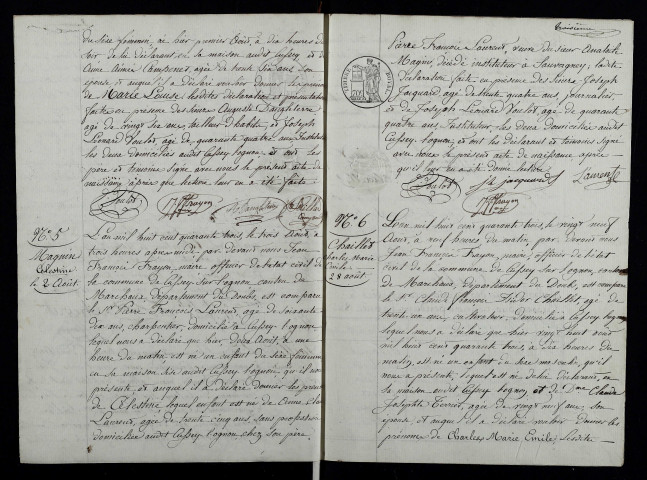 du sexe féminin, né hier premier août, à dix heures du
soir de lui déclarant en sa maison audit Cussey et de
Anne Aimée, âgée de trente six ans son
épouse et auquel il a déclaré vouloir donner les prénoms
de Marie Louise, lesdites déclaration et présentation
faites en présence des sieurs Auguste
âgé de vingt six ans tailleur d'habits, et Joseph
Léonard Voulot, âgé de quarante quatre ans Instituteur
les deux domiciliés audit Cussey l'ognon, et ont les
père et témoins signé avec nous le présent acte de
naissance après que lecture leur en a été faite.
Voulot Frayon
N.º 5
Magnin
Célestine
le 2 Août
L'an mil huit cent quarante trois le trois Août à
trois heures après midi par devant nous Jean
François Frayon, maire officier de l'état civil de
la commune de Cussey sur l'ognon canton de
Marchaux, département du Doubs, est comparu
le S.r Pierre François Laurent, âgé de soixante
ans, charpentier, domicilié à Cussey l'ognon
lequel nous a déclaré que hier, deux Août, à une
heure du matin est né un enfant du sexe féminin
en sa maison sise audit Cussey l'ognon qu'il nous
présente et auquel il a déclaré donner les prénoms
de Célestine lequel enfant est né de Anne Claude
Laurent, âgée de trente cinq ans, sans profession
domiciliée audit Cussey l'ognon chez son père,
troisième
Pierre François Laurent, veuve du sieur
Magnin, décédé instituteur à Sauvagney, ladite
Déclaration faite en présence des sieurs Joseph
Jacquard âgé de trente quatre ans, journalier
et de Joseph Léonard Voulot, âgé de quarante
quatre ans Instituteur les deux domiciliés audit
Cussey l'ognon, et ont les déclarant et témoins signé
avec nous le présent acte de naissance après
qu'il leur en a été donné lecture
Voulot jh jacquard Laurent
Frayon
N.º 6
Chaillet
Charles Marie
Emile
28 août
L'an mil huit cent quarante trois, le vingt neuf
Août, à neuf heures du matin, par devant nous
Jean François Frayon, maire, officier de l'état
civil de la commune de Cussey sur l'ognon, canton
de Marchaux, département du Doubs, est comparu
le S.r Claude François Chaillet, âgé de
trente un ans, cultivateur, domicilié à Cussey l'ognon
lequel nous a déclaré que hier vingt huit août
mil huit cent quarante trois à dix heures du
matin, est né un enfant du sexe masculin qu'il
nous a présenté, lequel est né de lui déclarant, en
sa maison audit Cussey l'ognon, et de D.me Claude
Josephte Terrier, âgée de vingt neuf ans, son
épouse, et auquel il a déclaré vouloir donner les
prénoms de Charles Marie Emile, lesdite